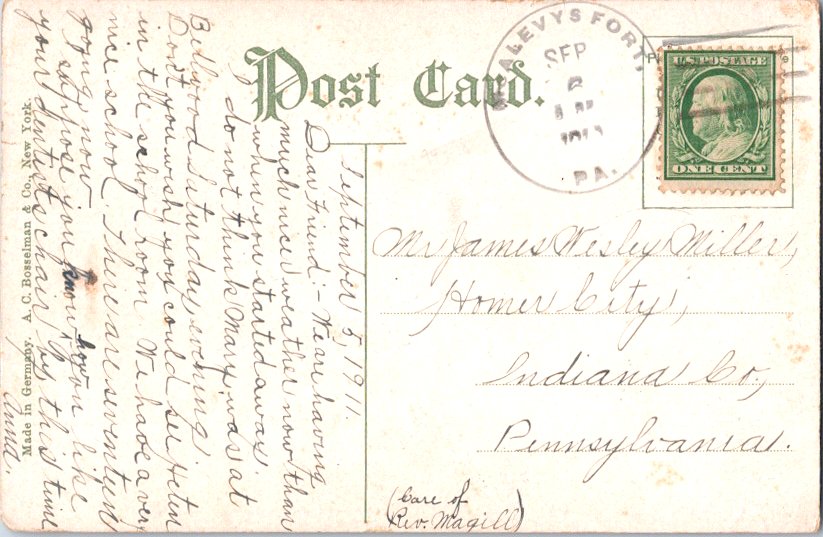 Post Card.
McALEVYS FORT,
SEP
6
PA.
U.S. POSTAGE
ONE CENT
Mr James Wesley Miller,
Homer City,
Indiana Co.,
Pennsylvania.
(Care of
Rev. Magill)
September 5, 1911.
Dear Friend:- We are having
much nicer weather now than
when you started away.
do not think Mary was at
Bellwood Saturday evening.
Don't you wish you could see Helen
in the school room. We have a very
nice school. There are seventeen
going now.
I suppose you know how you like
your dentist chair by this time
Anna.
Made in Germany. A. C. Bosselman & Co. New York.